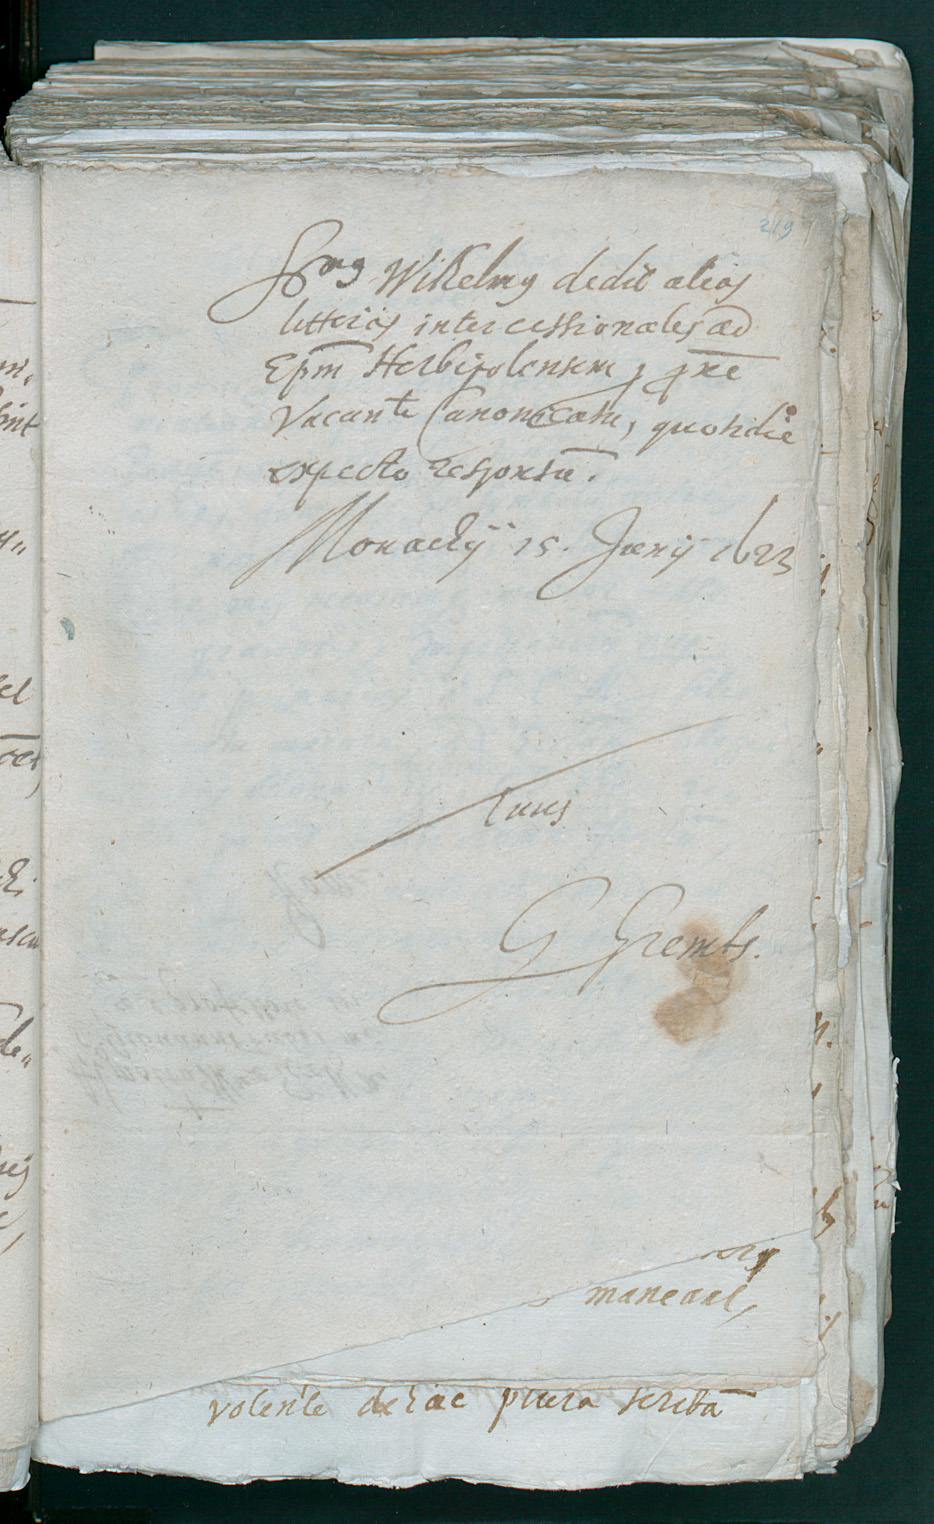 219
Wilhelmg dedit alias
litteras intercessionales ad
Epm Herbipolensem
Vacante Canonicatu, quotidie
expecto responsū.
Monachij 15. Junij 1623
tuus
G Grembs.
maneant,
volente de hac plura scribā